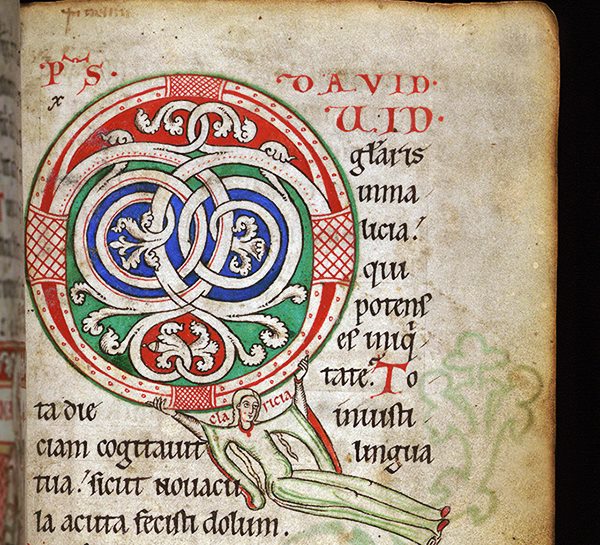 PS. DAVID.
x
UID.
gl̄aris
inma
licia.
qui
potens
es iniq̄
tate. To
ta die iniusti
claricia
ciam cogitauit lingua
tua. sicut nouacu
la acuta fecisti dolum.